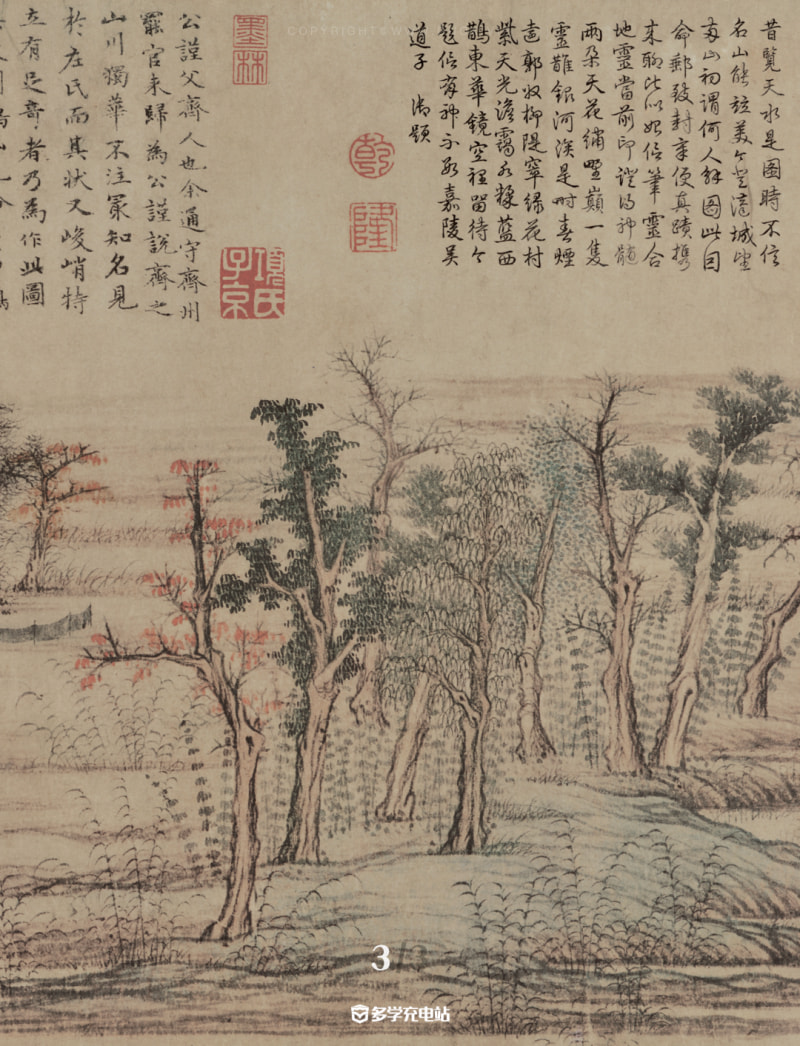 昔覽天水是圖時不信
名山能竝美今登濟城望
兩山初謂何人解圖此因
命郵致封章便真蹟攜
來聊比似始信筆靈合
地靈當前印證得神髓
兩朵天花繡野巔一隻
靈鵲銀河涘是時春煙
遠郭收柳隄窣綠花村
紫天光澹靄水揉藍西
鵲東華鏡空裡留待今
題信有神不數嘉陵吳
道子 御題
乾隆
墨林
項氏子京
公謹父齊人也余通守齊州
罷官來歸為公謹說齊之
山川獨華不注最知名見
於左氏而其狀又峻峭特
立有足奇者乃為作此圖
3
多学充电站